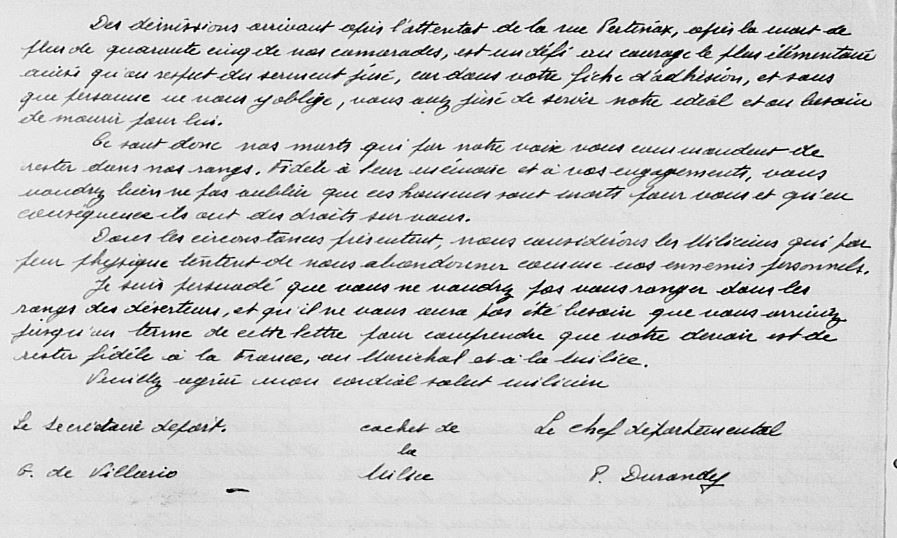 Des démissions arrivant après l'attentat de la rue Pertinax, après la mort de
plus de quarante cinq de nos camarades, est un défi au courage le plus élémentaire
ainsi qu'au respect du serment juré, car dans votre fiche d'adhésion, et sans
que personne ne vous y oblige, vous avez juré de servir notre idéal et au besoin
de mourir pour lui.
Ce sont donc nos morts qui par notre voix vous commandent de
rester dans nos rangs. Fidèle à leur mémoire et à vos engagements, vous
voudrez bien ne pas oublier que ces hommes sont morts pour vous et qu'en
conséquence ils ont des droits sur vous.
Dans les circonstances présentent, nous considérons les Miliciens qui par
peur physique tentent de nous abandonner comme nos ennemis personnels.
Je suis persuadé que vous ne voudrez pas vous ranger dans les
rangs des déserteurs, et qu'il ne vous aura pas été besoin que vous arriviez
jusqu'au terme de cette lettre pour comprendre que votre devoir est de
rester fidèle à la France, au Maréchal et à la Milice.
Veuillez agréer mon cordial salut milicien
Le Secrétaire départ. cachet de Le Chef départemental
la
F. de Villario Milice P. Durandy